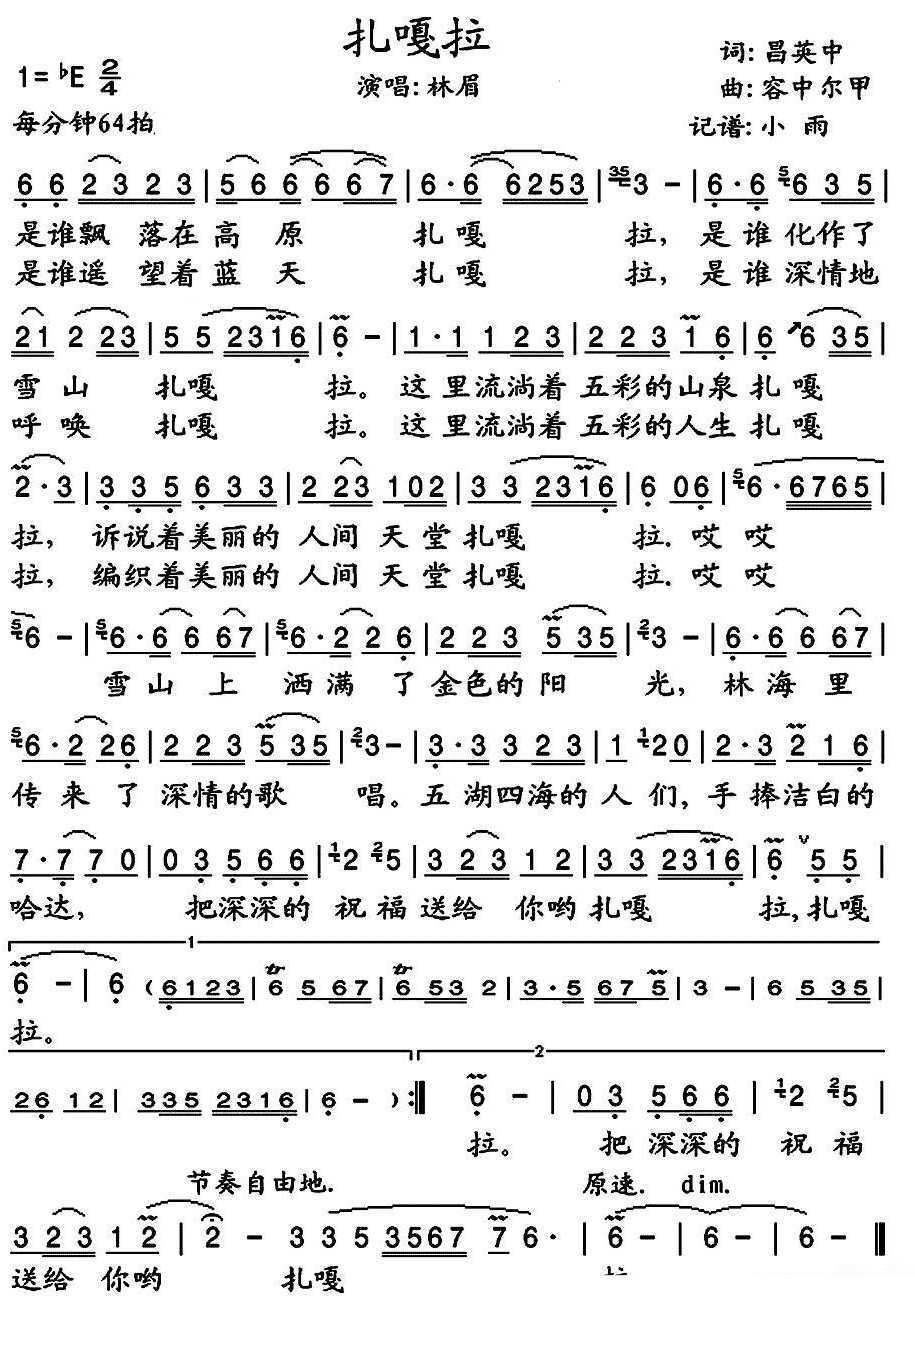 扎嘎拉
1=♭E 2/4
演唱:林眉
词:昌英中
曲:容中尔甲
每分钟64拍
记谱:小 雨
6 6 2 3 2 3 | 5 6 6 6 6 7 | 6·6 6253 | 35 3 - | 6·6 5 6 3 5 |
是谁飘 落在 高 原 扎 嘎 拉, 是 谁 化作了
是谁遥 望着 蓝 天 扎 嘎 拉, 是 谁 深情地
21 2 23 | 5 5 2316 | 6 - | 1·1 1 23 | 2 23 1 6 | 6 6 35 |
雪 山 扎嘎 拉。 这 里流淌着 五彩的山泉 扎 嘎
呼 唤 扎嘎 拉。 这 里流淌着 五彩的人生 扎 嘎
2·3 | 3 3 5 6 3 3 | 2 23 102 | 3 3 2316 | 6 06 | 5 6·6765 |
拉, 诉说着美丽的 人间 天 堂 扎嘎 拉. 哎 哎
拉, 编织着美丽的 人间 天 堂 扎嘎 拉. 哎 哎
5 6 - | 5 6·6 6 67 | 5 6·2 2 6 | 2 2 3 5 35 | 2 3 - | 6·6 6 67 |
雪 山 上 洒 满 了 金色的 阳 光, 林 海 里
5 6·2 26 | 2 2 3 5 35 | 2 3 - | 3·3 3 2 3 | 1 1 20 | 2·3 2 1 6 |
传 来 了 深情的歌 唱。 五 湖四海的 人 们, 手 捧洁白的
7·7 7 0 | 0 3 5 6 6 | 1 2 2 5 | 3 2 3 1 2 | 3 3 2316 | 6 ∨ 5 5 |
哈达, 把深深的 祝 福 送给 你哟 扎嘎 拉,扎嘎
1
6 - | 6 (6123 | 6 5 67 | 6 53 2 | 3·5 67 5 | 3 - | 6 5 35 |
拉。
2
26 12 | 335 2316 | 6 - ) :‖ 6 - | 0 3 5 6 6 | 1 2 2 5 |
拉。 把 深深的 祝 福
节奏自由地. 原速. dim.
3 2 3 1 2 | 2 - 3 3 5 3567 7 6· | 6 - | 6 - | 6 - ‖
送给 你哟 扎嘎